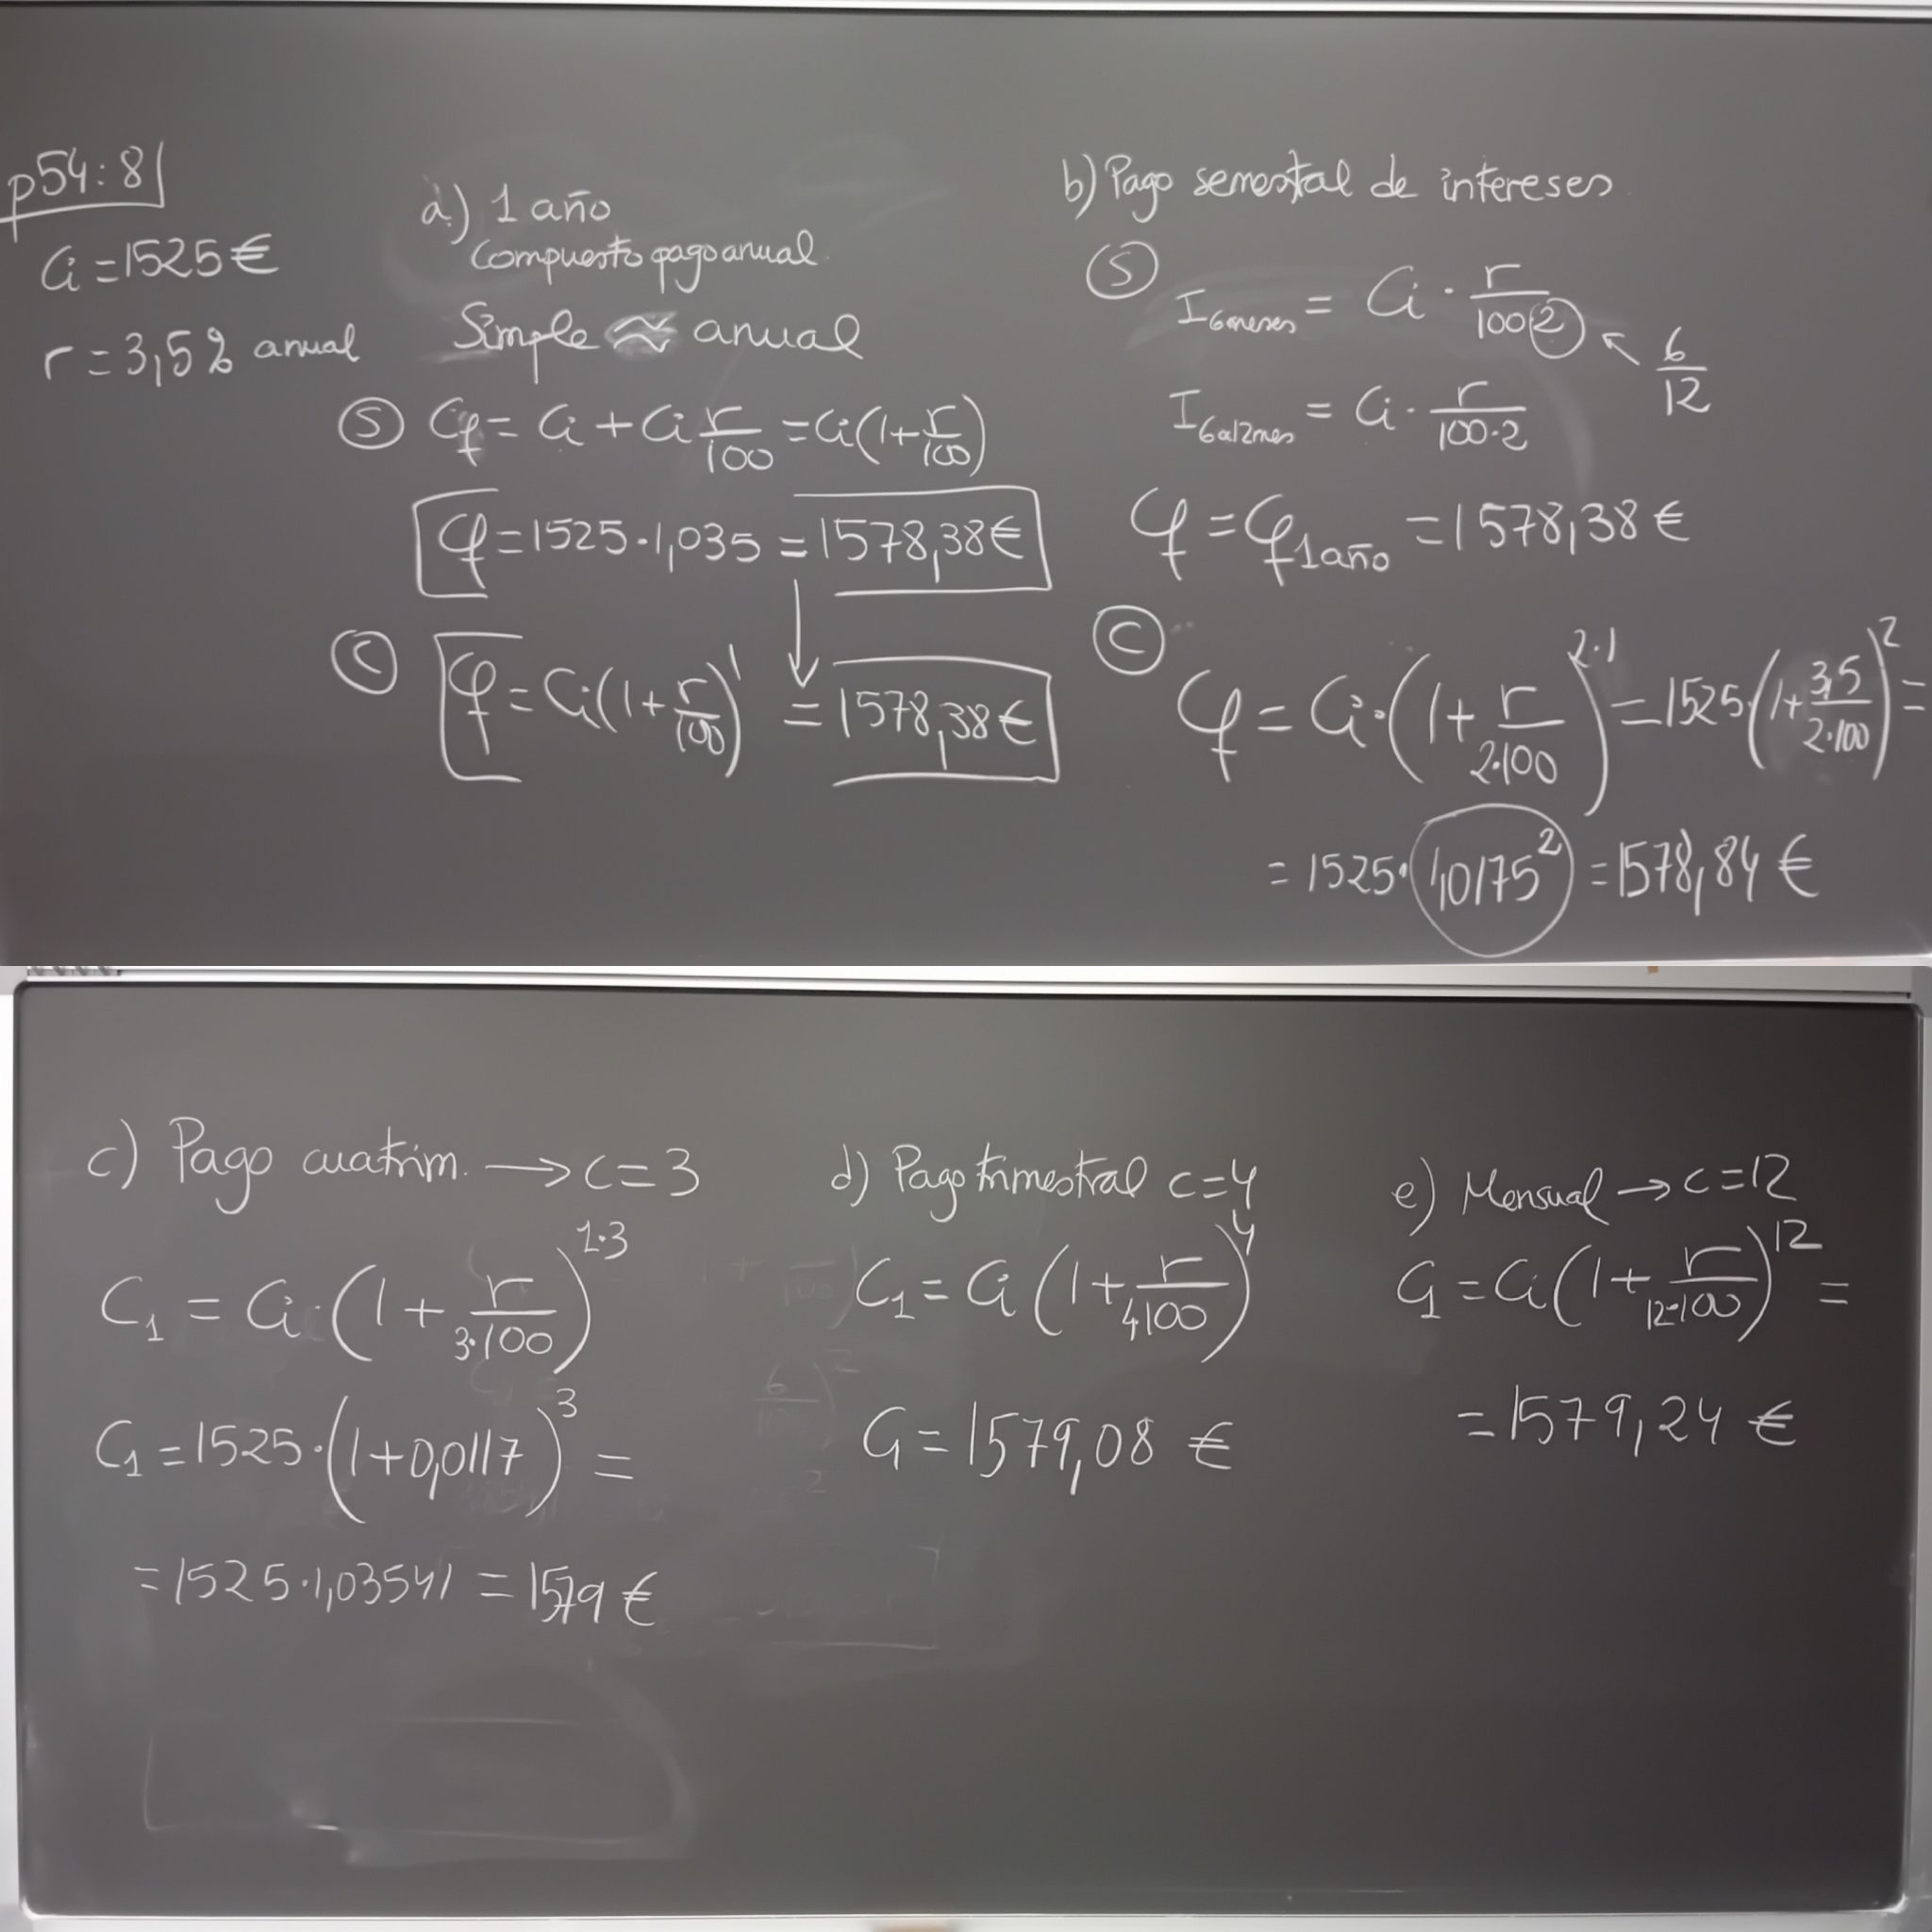 p54:8
Ci = 1525 €
r = 3,5% anual
a) 1 año
Compuesto pago anual.
Simple ≈ anual
Ⓢ Cf = Ci + Ci r/100 = Ci(1+r/100)
Cf = 1525·1,035 = 1578,38€
Ⓒ Cf = Ci(1+r/100)^1 = 1578,38€
b) Pago semestral de intereses
Ⓢ
I6meses = Ci · r/100·2 ← 6/12
I6a12mes = Ci · r/100·2
Cf = Cf1año = 1578,38 €
Ⓒ
Cf = Ci·(1+r/2·100)^2·1 = 1525·(1+3,5/2·100)^2 =
= 1525·1,0175^2 = 1578,84 €
c) Pago cuatrim. → c=3
C1 = Ci·(1+r/3·100)^1·3
C1 = 1525·(1+0,0117)^3 =
= 1525·1,03541 = 1579 €
d) Pago trimestral c=4
C1 = Ci(1+r/4·100)^4
C1 = 1579,08 €
e) Mensual → c=12
C1 = Ci(1+r/12·100)^12 =
= 1579,24 €